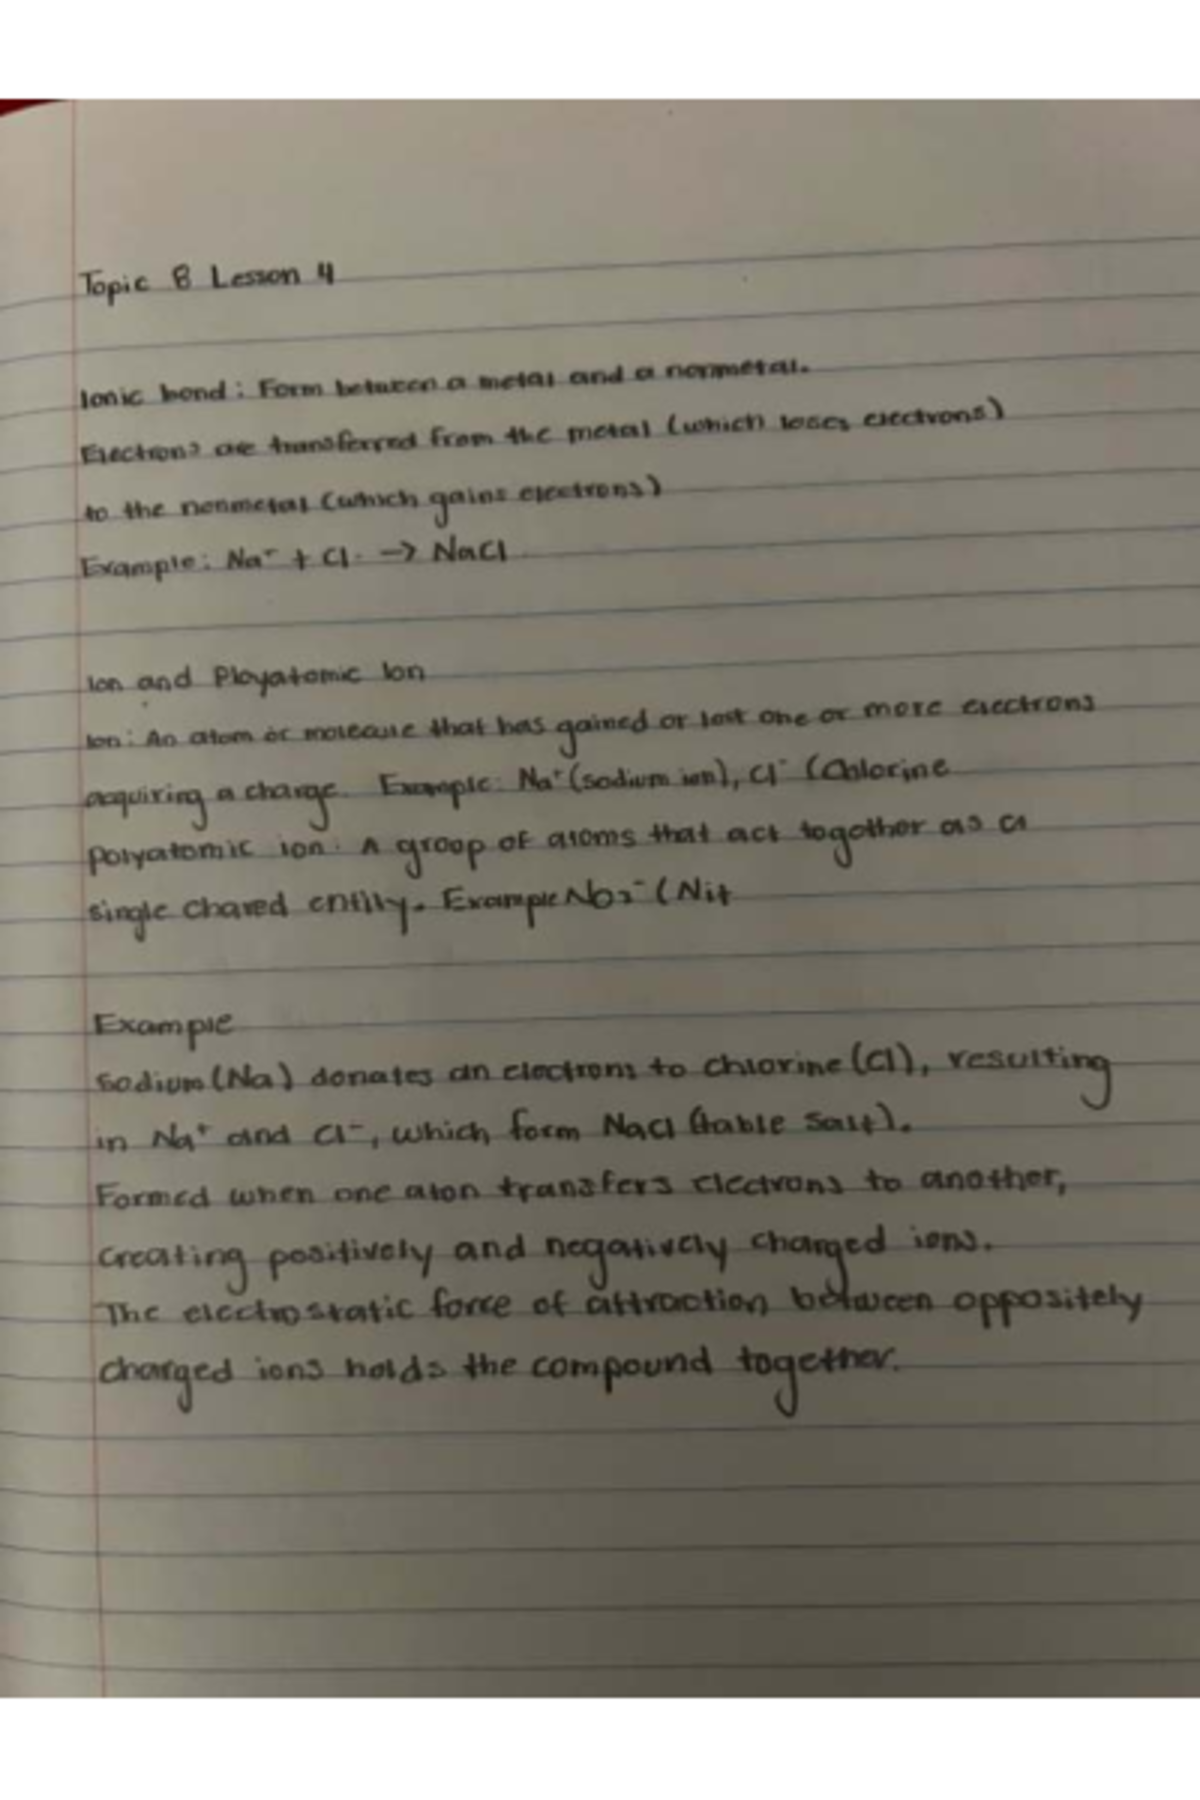 Topic 8 Lesson 4
Ionic bond: Form between a metal and a nonmetal.
Electrons are transferred from the metal (which loses electrons)
to the nonmetal (which gains electrons)
Example: Na⁺ + Cl· → NaCl
Ion and Ployatomic Ion
Ion: An atom or molecule that has gained or lost one or more electrons
acquiring a charge. Example: Na⁺ (sodium ion), Cl⁻ (Chlorine
Polyatomic ion: A group of atoms that act togother as a
single chared entity. Example No₃⁻ (Nit
Example
Sodium (Na) donates an electrons to chlorine (Cl), resulting
in Na⁺ and Cl⁻, which form NaCl (table salt).
Formed when one aton transfers electrons to another,
creating positively and negatively charged ions.
The electrostatic force of attraction between oppositely
charged ions holds the compound together.